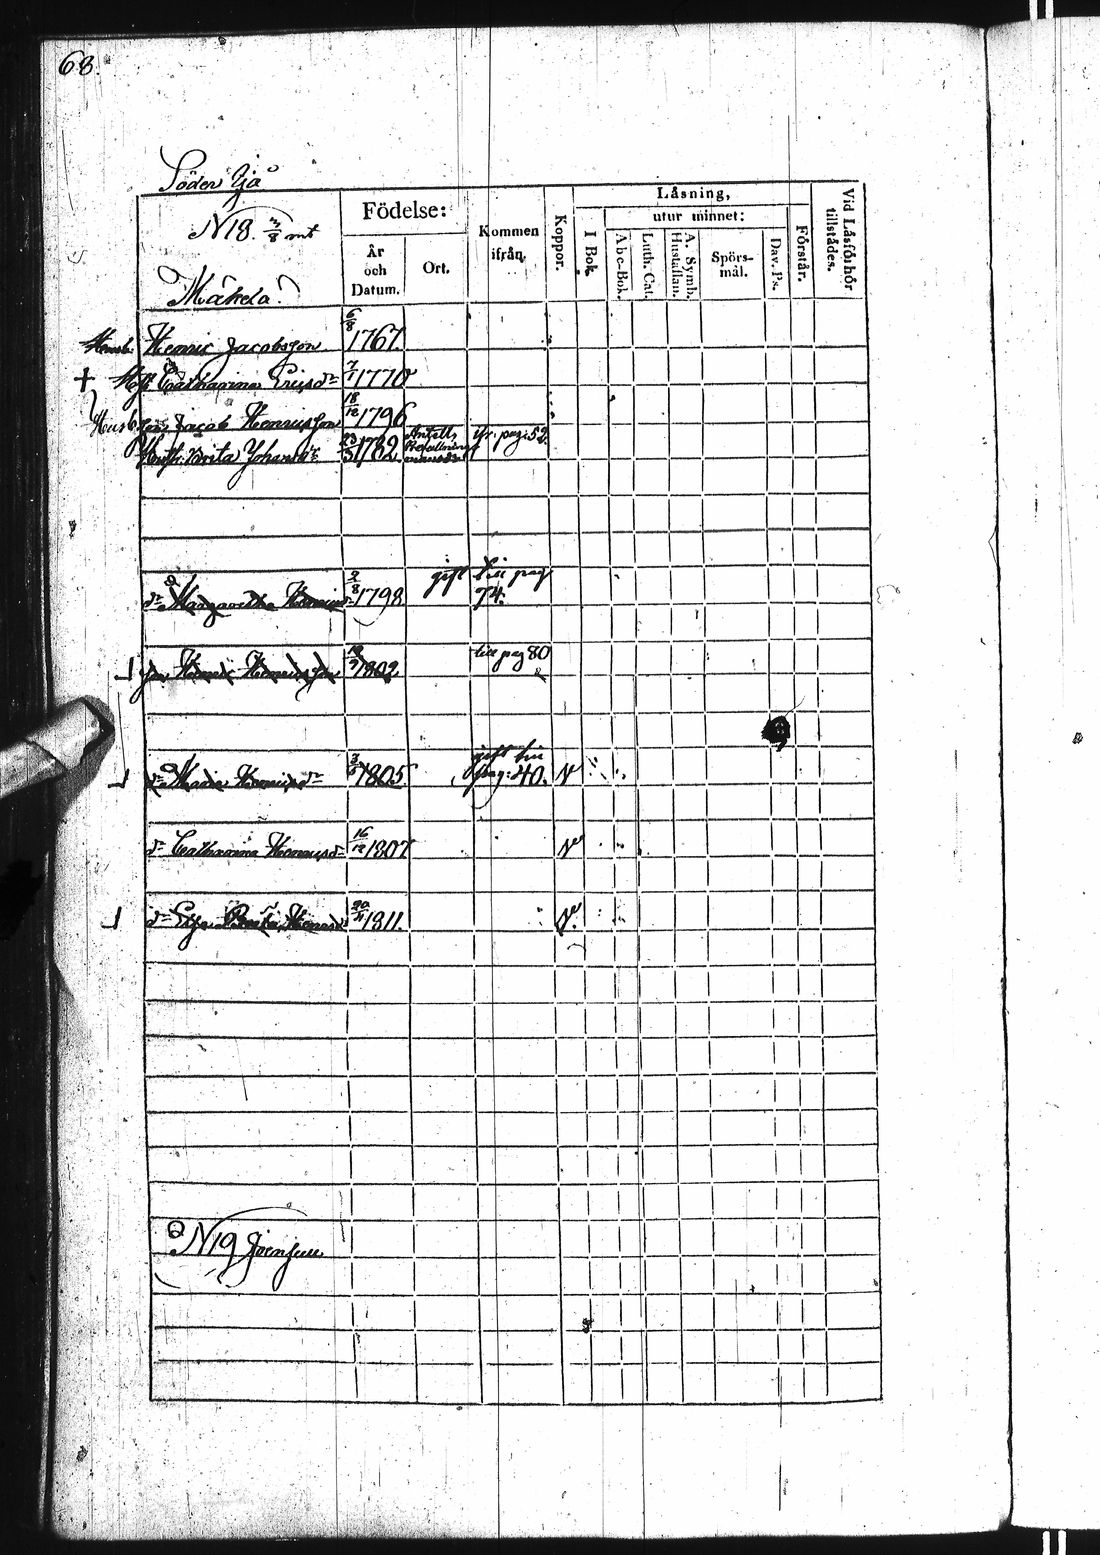 68.
Söder Yjä
N 18. 3/8 mt
Mäkelä
Födelse:
År
och
Datum.
Ort.
Kommen
ifrån.
Koppor.
Läsning,
I Bok.
utur minnet:
Abc-Bok.
Luth. Cat.
A. Symb.
Hustaflan.
Spörs-
mål.
Dav. Ps.
Förstår.
Vid Läsförhör
tillstädes.
Henric Jacobsson 6/8 1767.
+ Catharina Ericsdr 7/1 1770
Husb. Son Jacob Henricsson 18/12 1796
Hustr. Brita Johansdr 23/3 1782 fr. pag: 52.
dr Margaretha Henricsdr 2/8 1798 gift till pag
74.
Son Henric Henricsson 1802 till pag 80
dr Maria Henricsdr 1805 gift till
pag: 40. v
dr Catharina Henricsdr 16/12 1807 v
dr 1811. v.
N 19